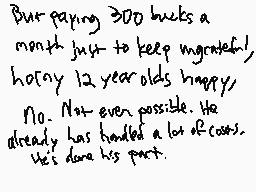 But paying 300 bucks a
month just to keep ungrateful,
horny 12 year olds happy,
no. Not even possible. He
already has handled a lot of costs.
He's done his part.